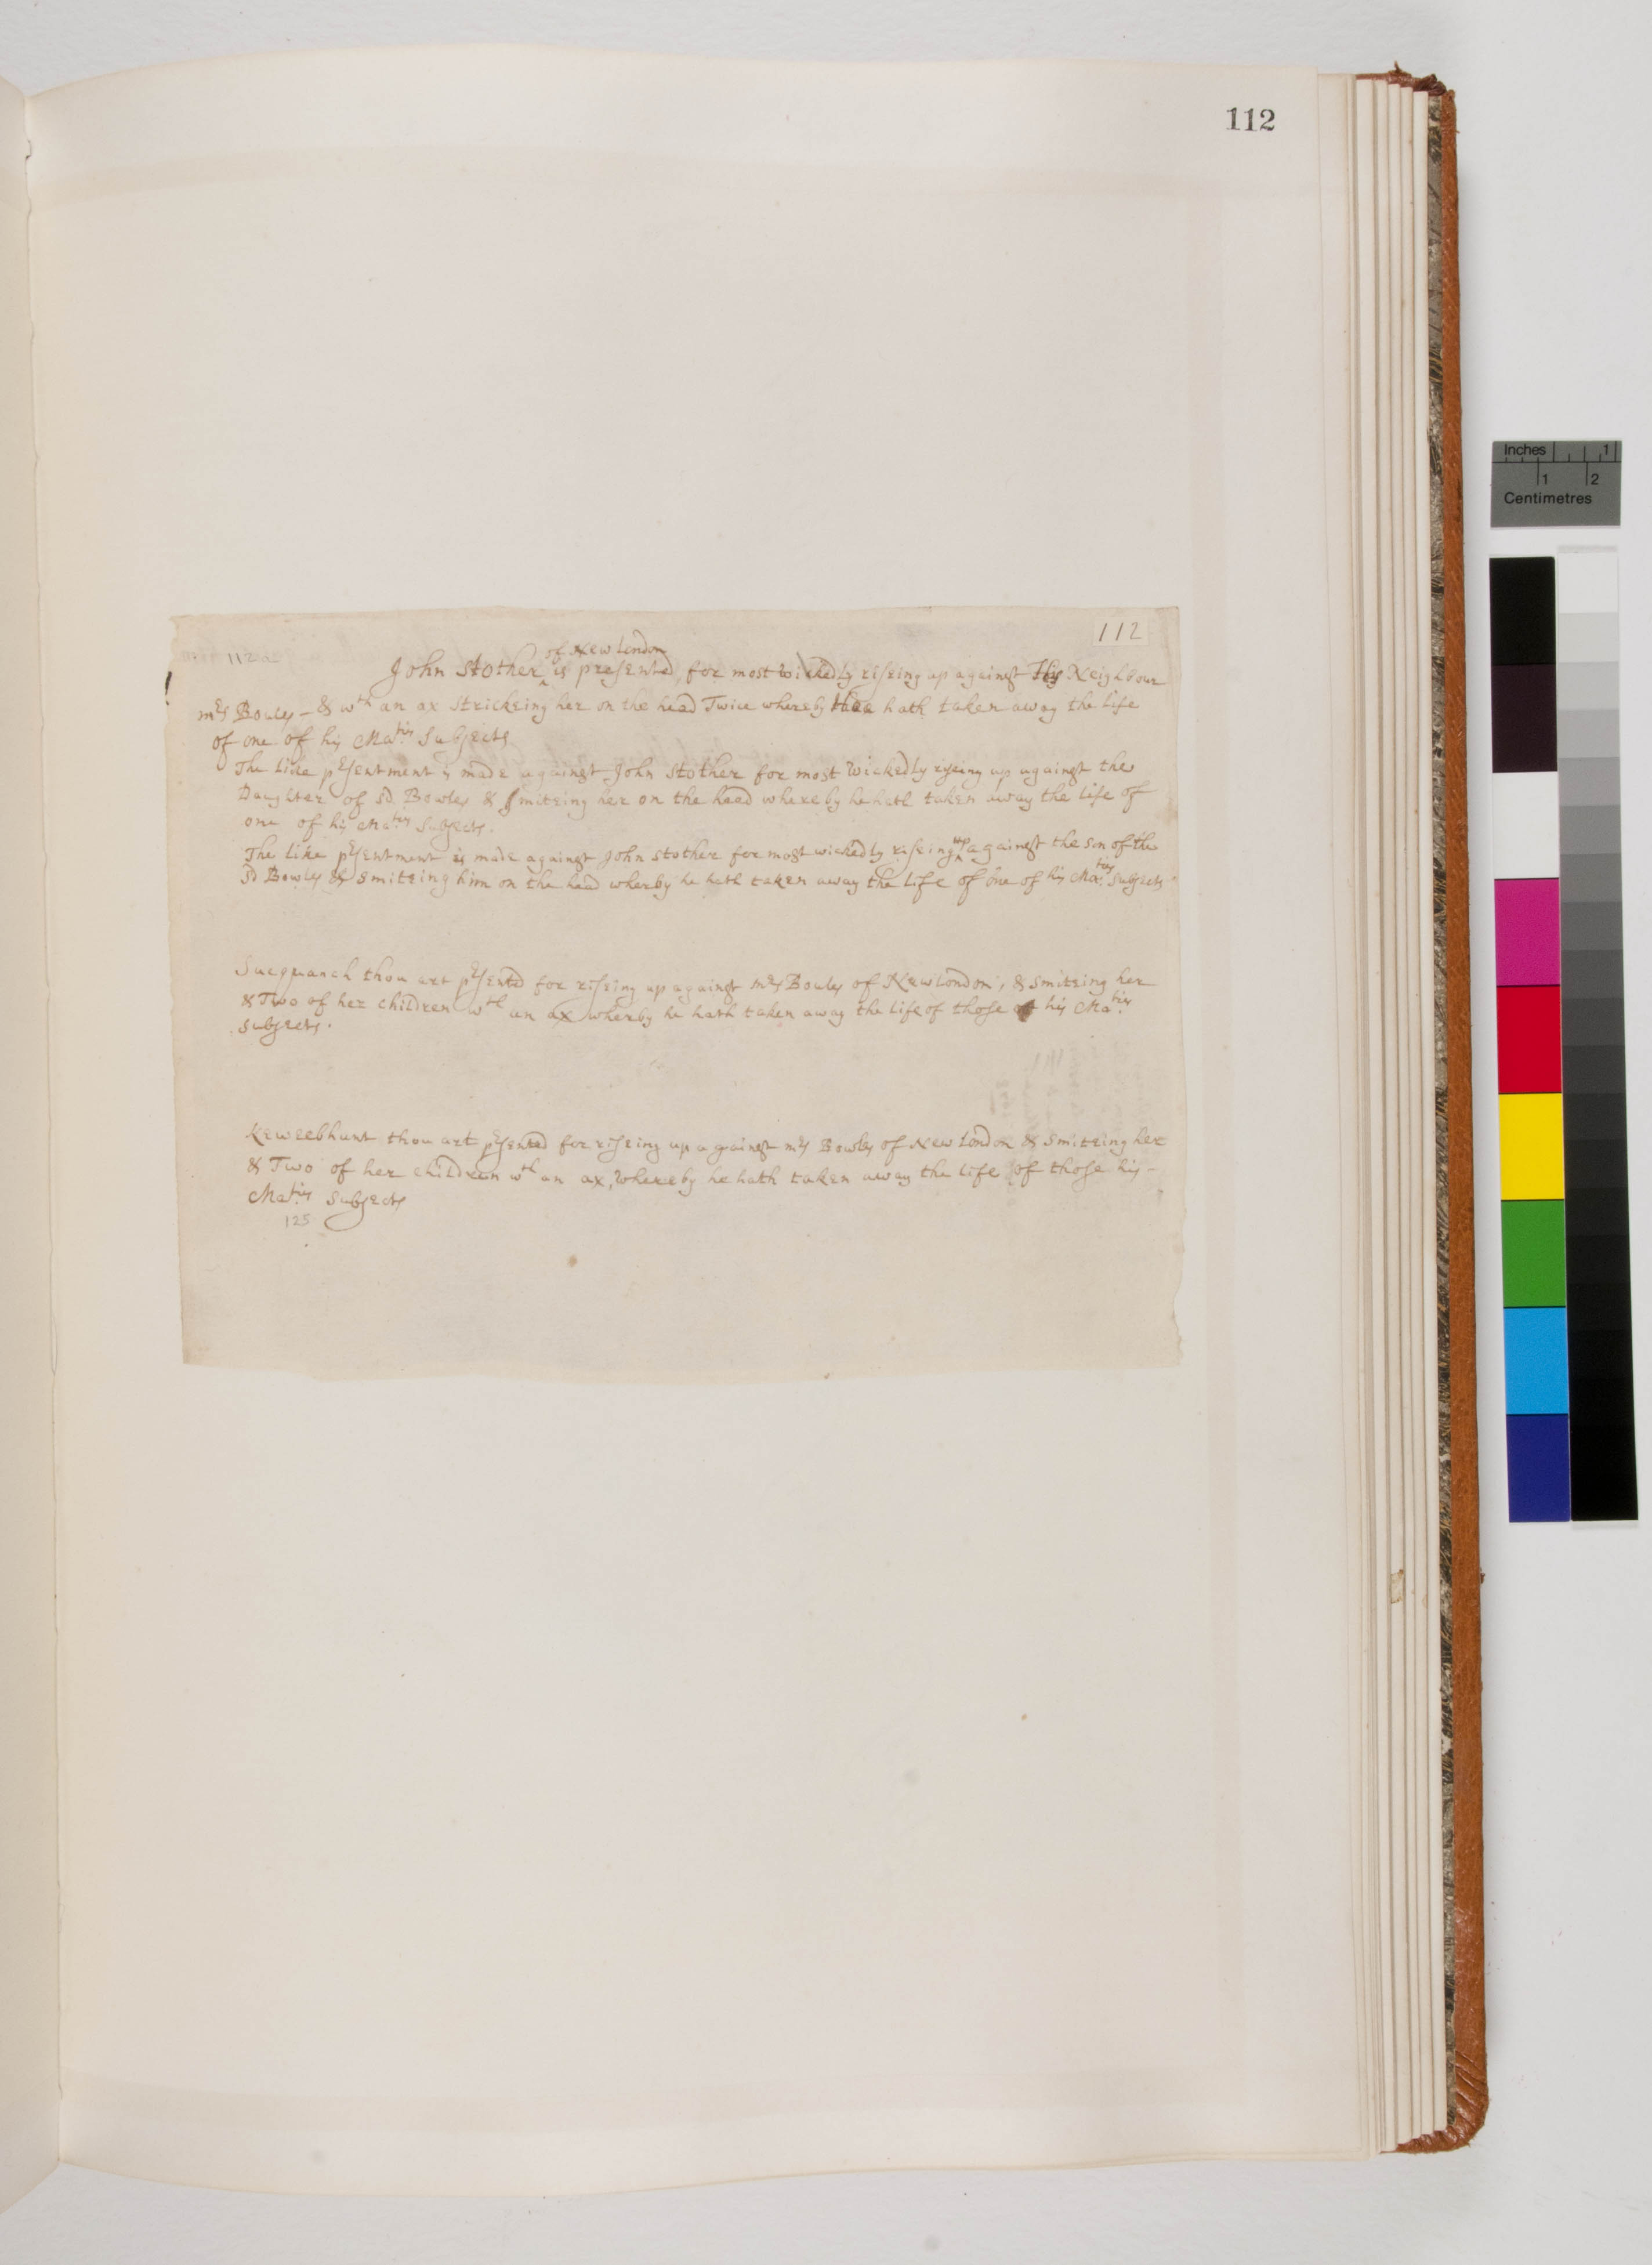 112
112
112a
of New London
John Stother ^ is presented, for most Wickedly riseing up against His Neighbour
mrs Bowles - & wth an ax Strickeing her on the head Twice whereby hee hath taken away the life
of one of his Maties Subjects
The Like presentment is made against John Stother for most Wickedly riseing up against the
Daughter of sd Bowles & smiteing her on the head whereby he hath taken away the life of
one of his Maties Subjects.
The Like presentment is made against John Stother for most wickedly riseing up ^ against the son of the
sd Bowles & smiteing him on the head wherby he hath taken away the Life of one of his Maties subjects
Sucquanch thou art presented for riseing up against mrs Bowles of New London, & smiteing her
& Two of her children wth an ax wherby he hath taken away the life of those of his Maties
subjects.
Keweebhunt thou art presented for riseing up against mrs Bowles of New London & smiteing her
& Two of her children wth an ax, whereby he hath taken away the life of those his -
Maties subjects
125
Inches 1
1 2
Centimetres